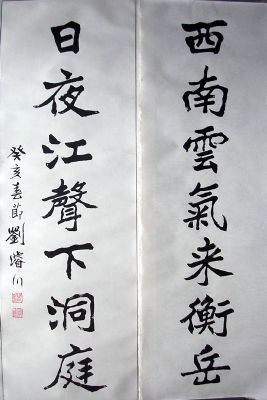 西南雲氣来衡岳
日夜江聲下洞庭
癸亥春節劉濬川